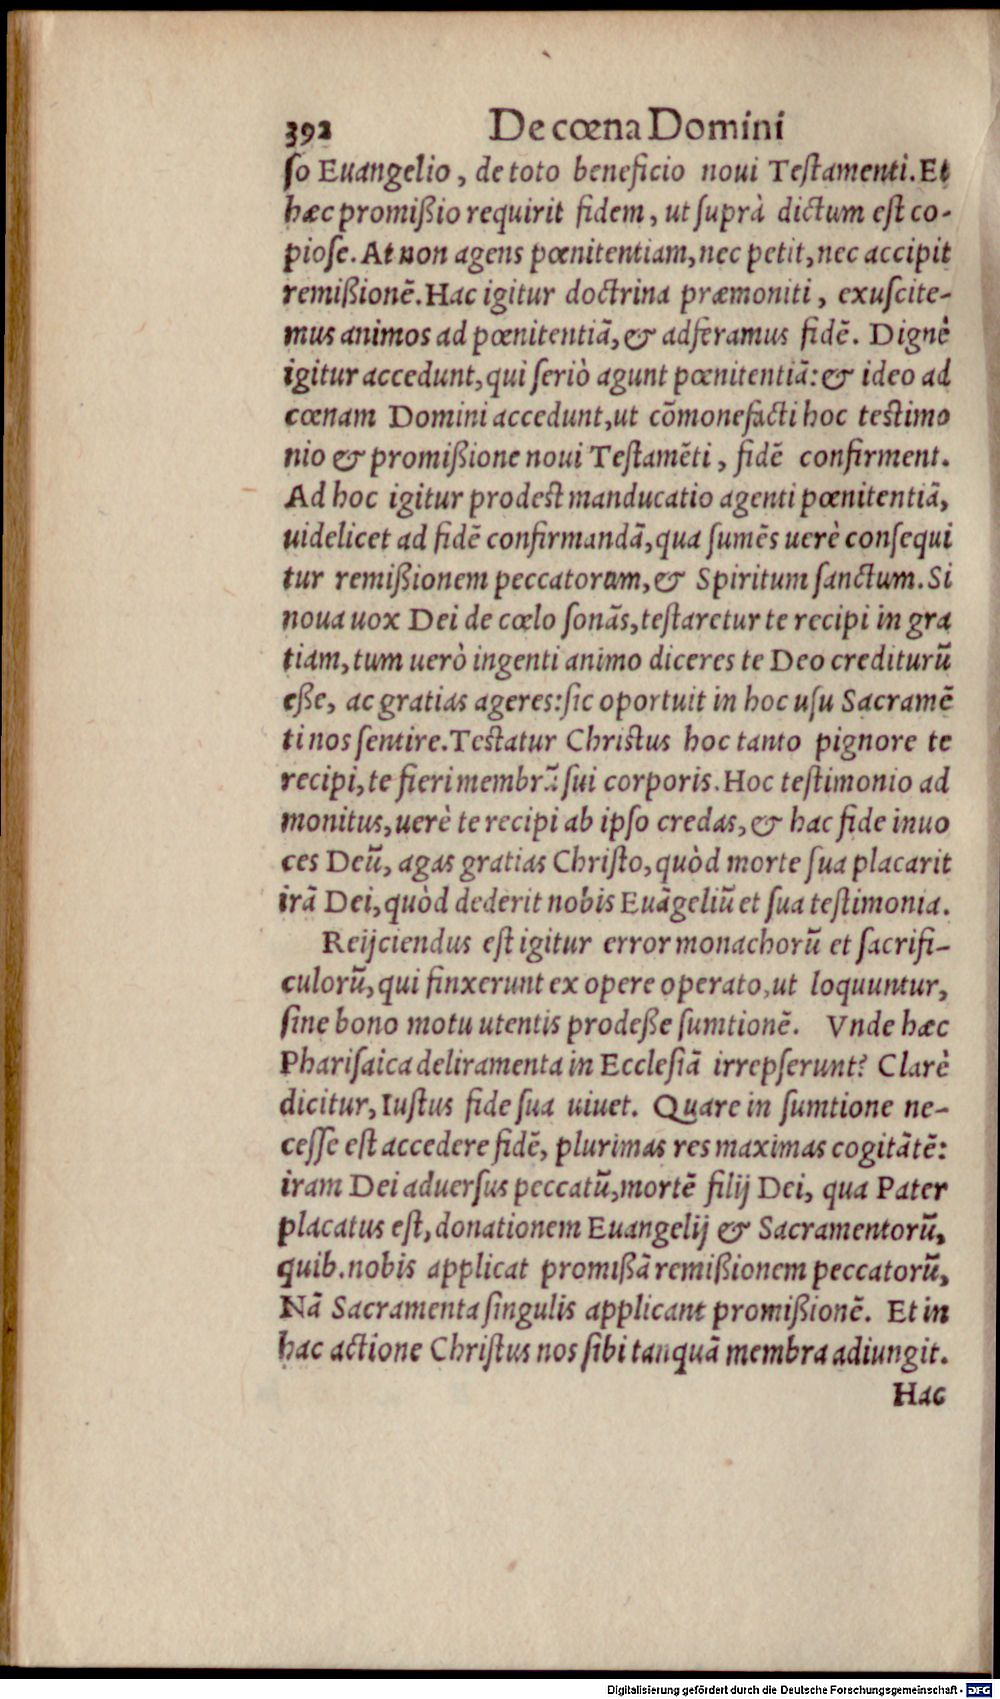 392 De cœna Domini
ſo Euangelio, de toto beneficio noui Teſtamenti. Et
hæc promißio requirit fidem, ut ſuprà dictum eſt co-
pioſe. At non agens pœnitentiam, nec petit, nec accipit
remißionẽ. Hac igitur doctrina præmoniti, exuſcite-
mus animos ad pœnitentiã, & adferamus fidẽ. Dignè
igitur accedunt, qui ſeriò agunt pœnitentiã: & ideo ad
cœnam Domini accedunt, ut cõmonefacti hoc teſtimo
nio & promißione noui Teſtamẽti, fidẽ confirment.
Ad hoc igitur prodeſt manducatio agenti pœnitentiã,
uidelicet ad fidẽ confirmandã, qua ſumẽs uerè conſequi
tur remißionem peccatorum, & Spiritum ſanctum. Si
noua uox Dei de cœlo ſonãs, teſtaretur te recipi in gra
tiam, tum uerò ingenti animo diceres te Deo crediturũ
eße, ac gratias ageres: ſic oportuit in hoc uſu Sacramẽ
ti nos ſentire. Teſtatur Chriſtus hoc tanto pignore te
recipi, te fieri membrũ ſui corporis. Hoc teſtimonio ad
monitus, uerè te recipi ab ipſo credas, & hac fide inuo
ces Deũ, agas gratias Chriſto, quòd morte ſua placarit
irã Dei, quòd dederit nobis Euãgeliũ et ſua teſtimonia.
Reijciendus eſt igitur error monachorũ et ſacrifi-
culorũ, qui finxerunt ex opere operato, ut loquuntur,
ſine bono motu utentis prodeße ſumtionẽ. Vnde hæc
Phariſaica deliramenta in Eccleſiã irrepſerunt? Clarè
dicitur, Iuſtus fide ſua uiuet. Quare in ſumtione ne-
ceſſe eſt accedere fidẽ, plurimas res maximas cogitãtẽ:
iram Dei aduerſus peccatũ, mortẽ filij Dei, qua Pater
placatus eſt, donationem Euangelij & Sacramentorũ,
quib. nobis applicat promißã remißionem peccatorũ,
Nã Sacramenta ſingulis applicant promißionẽ. Et in
hac actione Chriſtus nos ſibi tanquã membra adiungit.
Hac
Digitalisierung gefördert durch die Deutsche Forschungsgemeinschaft - DFG